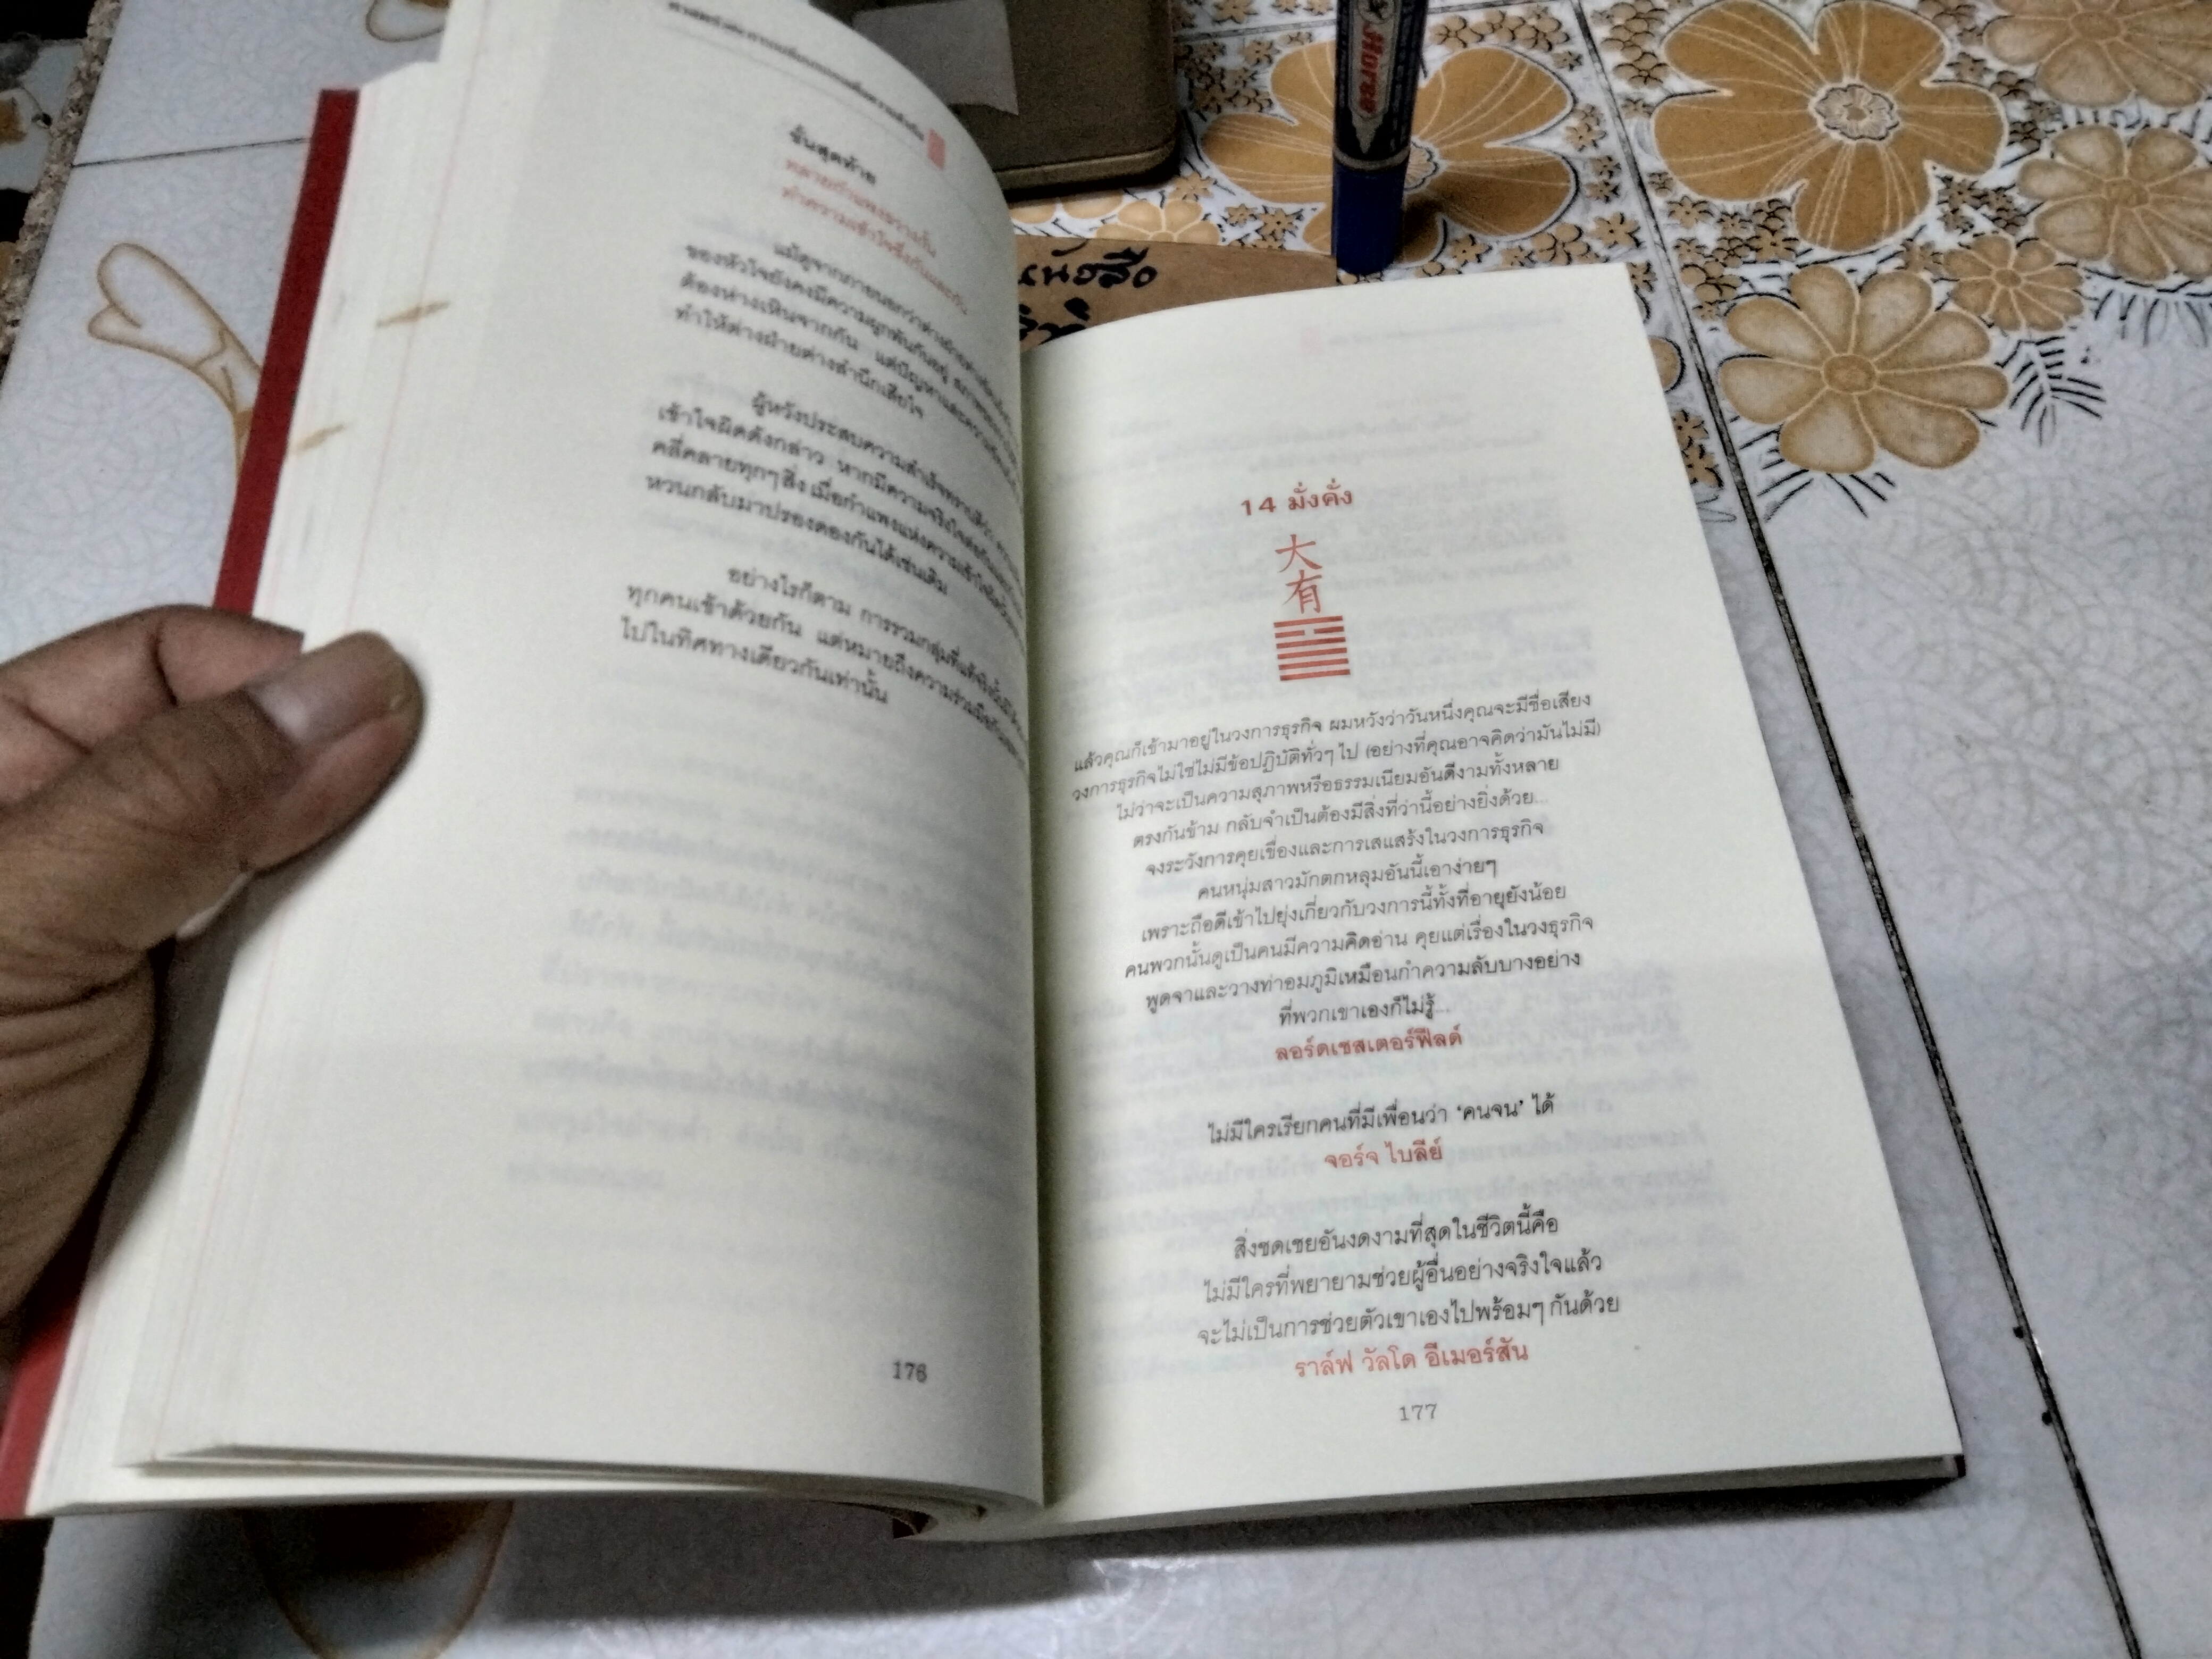 ขั้นสุดท้าย
ทลายกำแพงขวางกั้น
ทำความเข้าใจซึ่งกันและกัน
แม้ดูจากภายนอกว่าต่างฝ่าย
ของหัวใจยังคงมีความผูกพันกันอยู่
ต้องห่างเหินจากกัน แต่ปัญหาและความ
ทำให้ต่างฝ่ายต่างสำนึกเสียใจ
ผู้หวังประสบความสำเร็จทราบดีว่า
เข้าใจผิดดังกล่าว หากมีความจริงใจต่อกัน
คลี่คลายทุกๆ สิ่ง เมื่อกำแพงแห่งความเข้าใจผิด
หวนกลับมาปรองดองกันได้เช่นเดิม
อย่างไรก็ตาม การรวมกลุ่มที่แท้จริงนั้น
ทุกคนเข้าด้วยกัน แต่หมายถึงความร่วมมือกัน
ไปในทิศทางเดียวกันเท่านั้น
176
Horse
หนังสือ
14 มั่งคั่ง
大
有
แล้วคุณก็เข้ามาอยู่ในวงการธุรกิจ ผมหวังว่าวันหนึ่งคุณจะมีชื่อเสียง
วงการธุรกิจไม่ใช่ไม่มีข้อปฏิบัติทั่วๆ ไป (อย่างที่คุณอาจคิดว่ามันไม่มี)
ไม่ว่าจะเป็นความสุภาพหรือธรรมเนียมอันดีงามทั้งหลาย
ตรงกันข้าม กลับจำเป็นต้องมีสิ่งที่ว่านี้อย่างยิ่งด้วย...
จงระวังการคุยเขื่องและการเสแสร้งในวงการธุรกิจ
คนหนุ่มสาวมักตกหลุมอันนี้เอาง่ายๆ
เพราะถือดีเข้าไปยุ่งเกี่ยวกับวงการนี้ทั้งที่อายุยังน้อย
คนพวกนั้นดูเป็นคนมีความคิดอ่าน คุยแต่เรื่องในวงธุรกิจ
พูดจาและวางท่าอมภูมิเหมือนกำความลับบางอย่าง
ที่พวกเขาเองก็ไม่รู้...
ลอร์ดเชสเตอร์ฟิลด์
ไม่มีใครเรียกคนที่มีเพื่อนว่า ‘คนจน’ ได้
จอร์จ ไบลีย์
สิ่งชดเชยอันงดงามที่สุดในชีวิตนี้คือ
ไม่มีใครที่พยายามช่วยผู้อื่นอย่างจริงใจแล้ว
จะไม่เป็นการช่วยตัวเขาเองไปพร้อมๆ กันด้วย
ราล์ฟ วัลโด อีเมอร์สัน
177